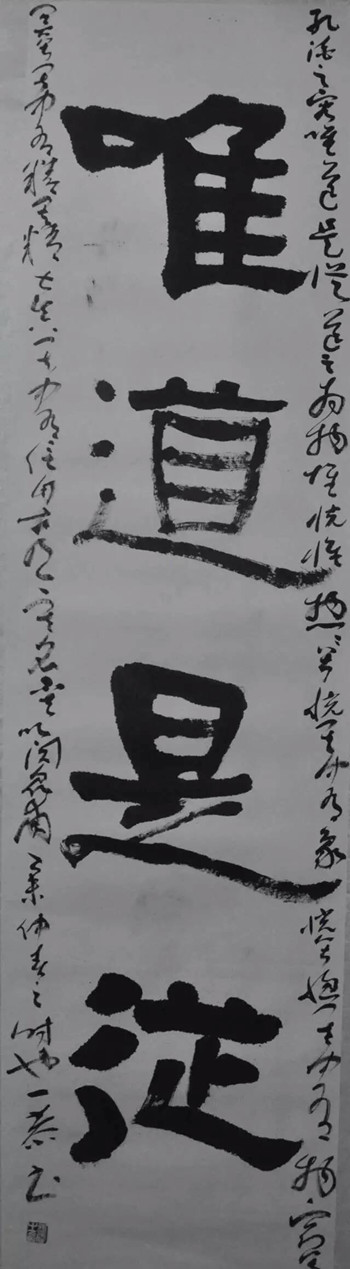 孔德之容唯道是從道之為物惟恍惟惚惚兮恍其中有象恍兮惚其中有物窈兮
唯道是從
冥其中有精其精甚真其中有信自古及今其名不去以閱衆甫仲春之時也一恭書